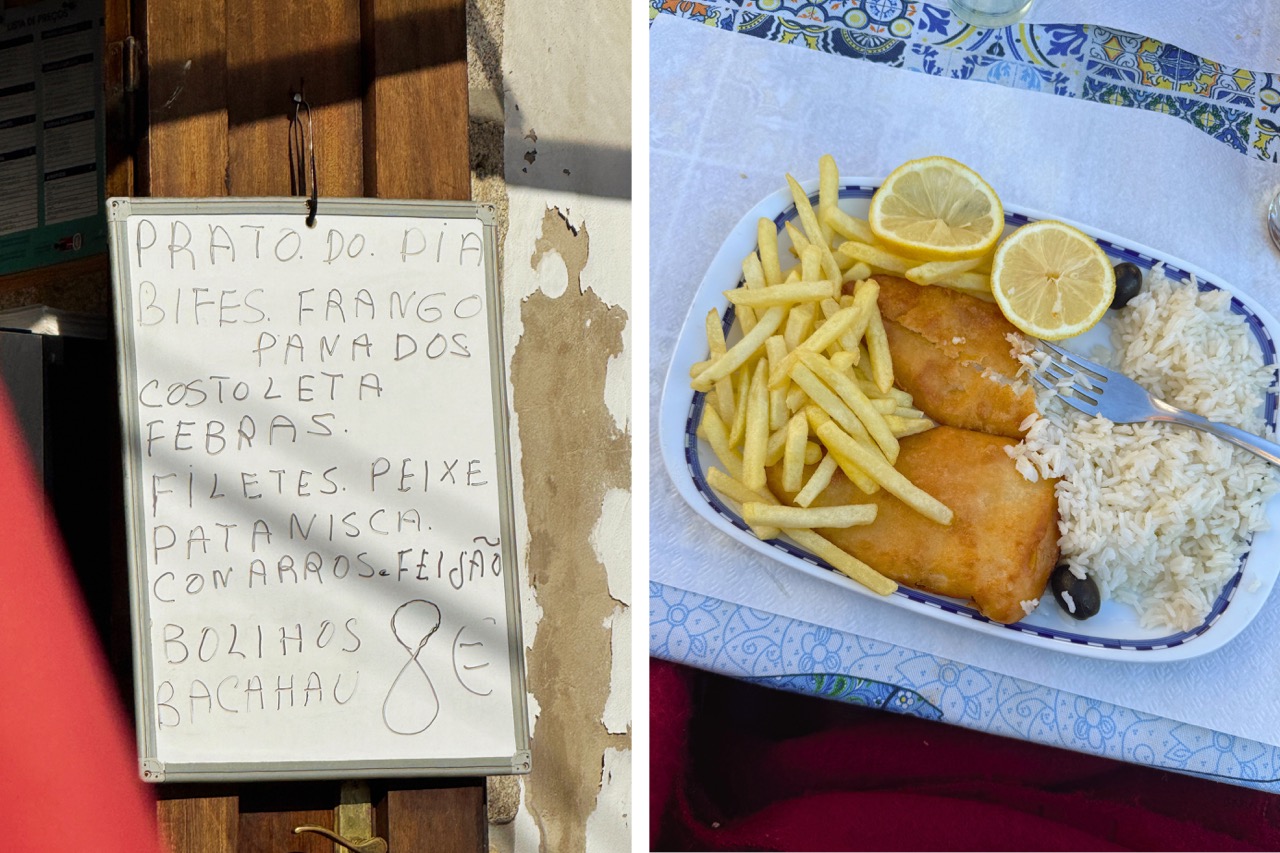 LISTA DE PREÇOS
PRATO. DO. DIA
BIFES. FRANGO
PANADOS
COSTOLETA
FEBRAS.
FILETES. PEIXE
PATANISCA.
CON ARROS. FEIJÃO
BOLIHOS
BACAHAU
8 €